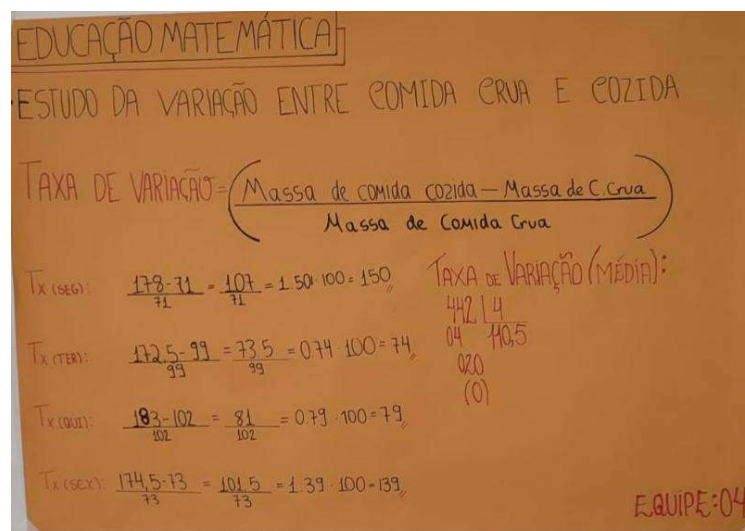 EDUCAÇÃO MATEMÁTICA
·ESTUDO DA VARIAÇÃO ENTRE COMIDA CRUA E COZIDA
TAXA DE VARIAÇÃO = (Massa de comida cozida — Massa de C. Crua
Massa de Comida Crua)
Tx (SEG): 178-71 = 107 = 1.50 · 100 = 150
71 71
Tx (TER): 172,5-99 = 73.5 = 0.74 · 100 = 74
99 99
Tx (QUI): 183-102 = 81 = 0.79 · 100 = 79
102 102
Tx (SEX): 174,5-73 = 101.5 = 1.39 · 100 = 139
73 73
TAXA DE VARIAÇÃO (MÉDIA):
442 | 4
04 110,5
020
(0)
EQUIPE:04